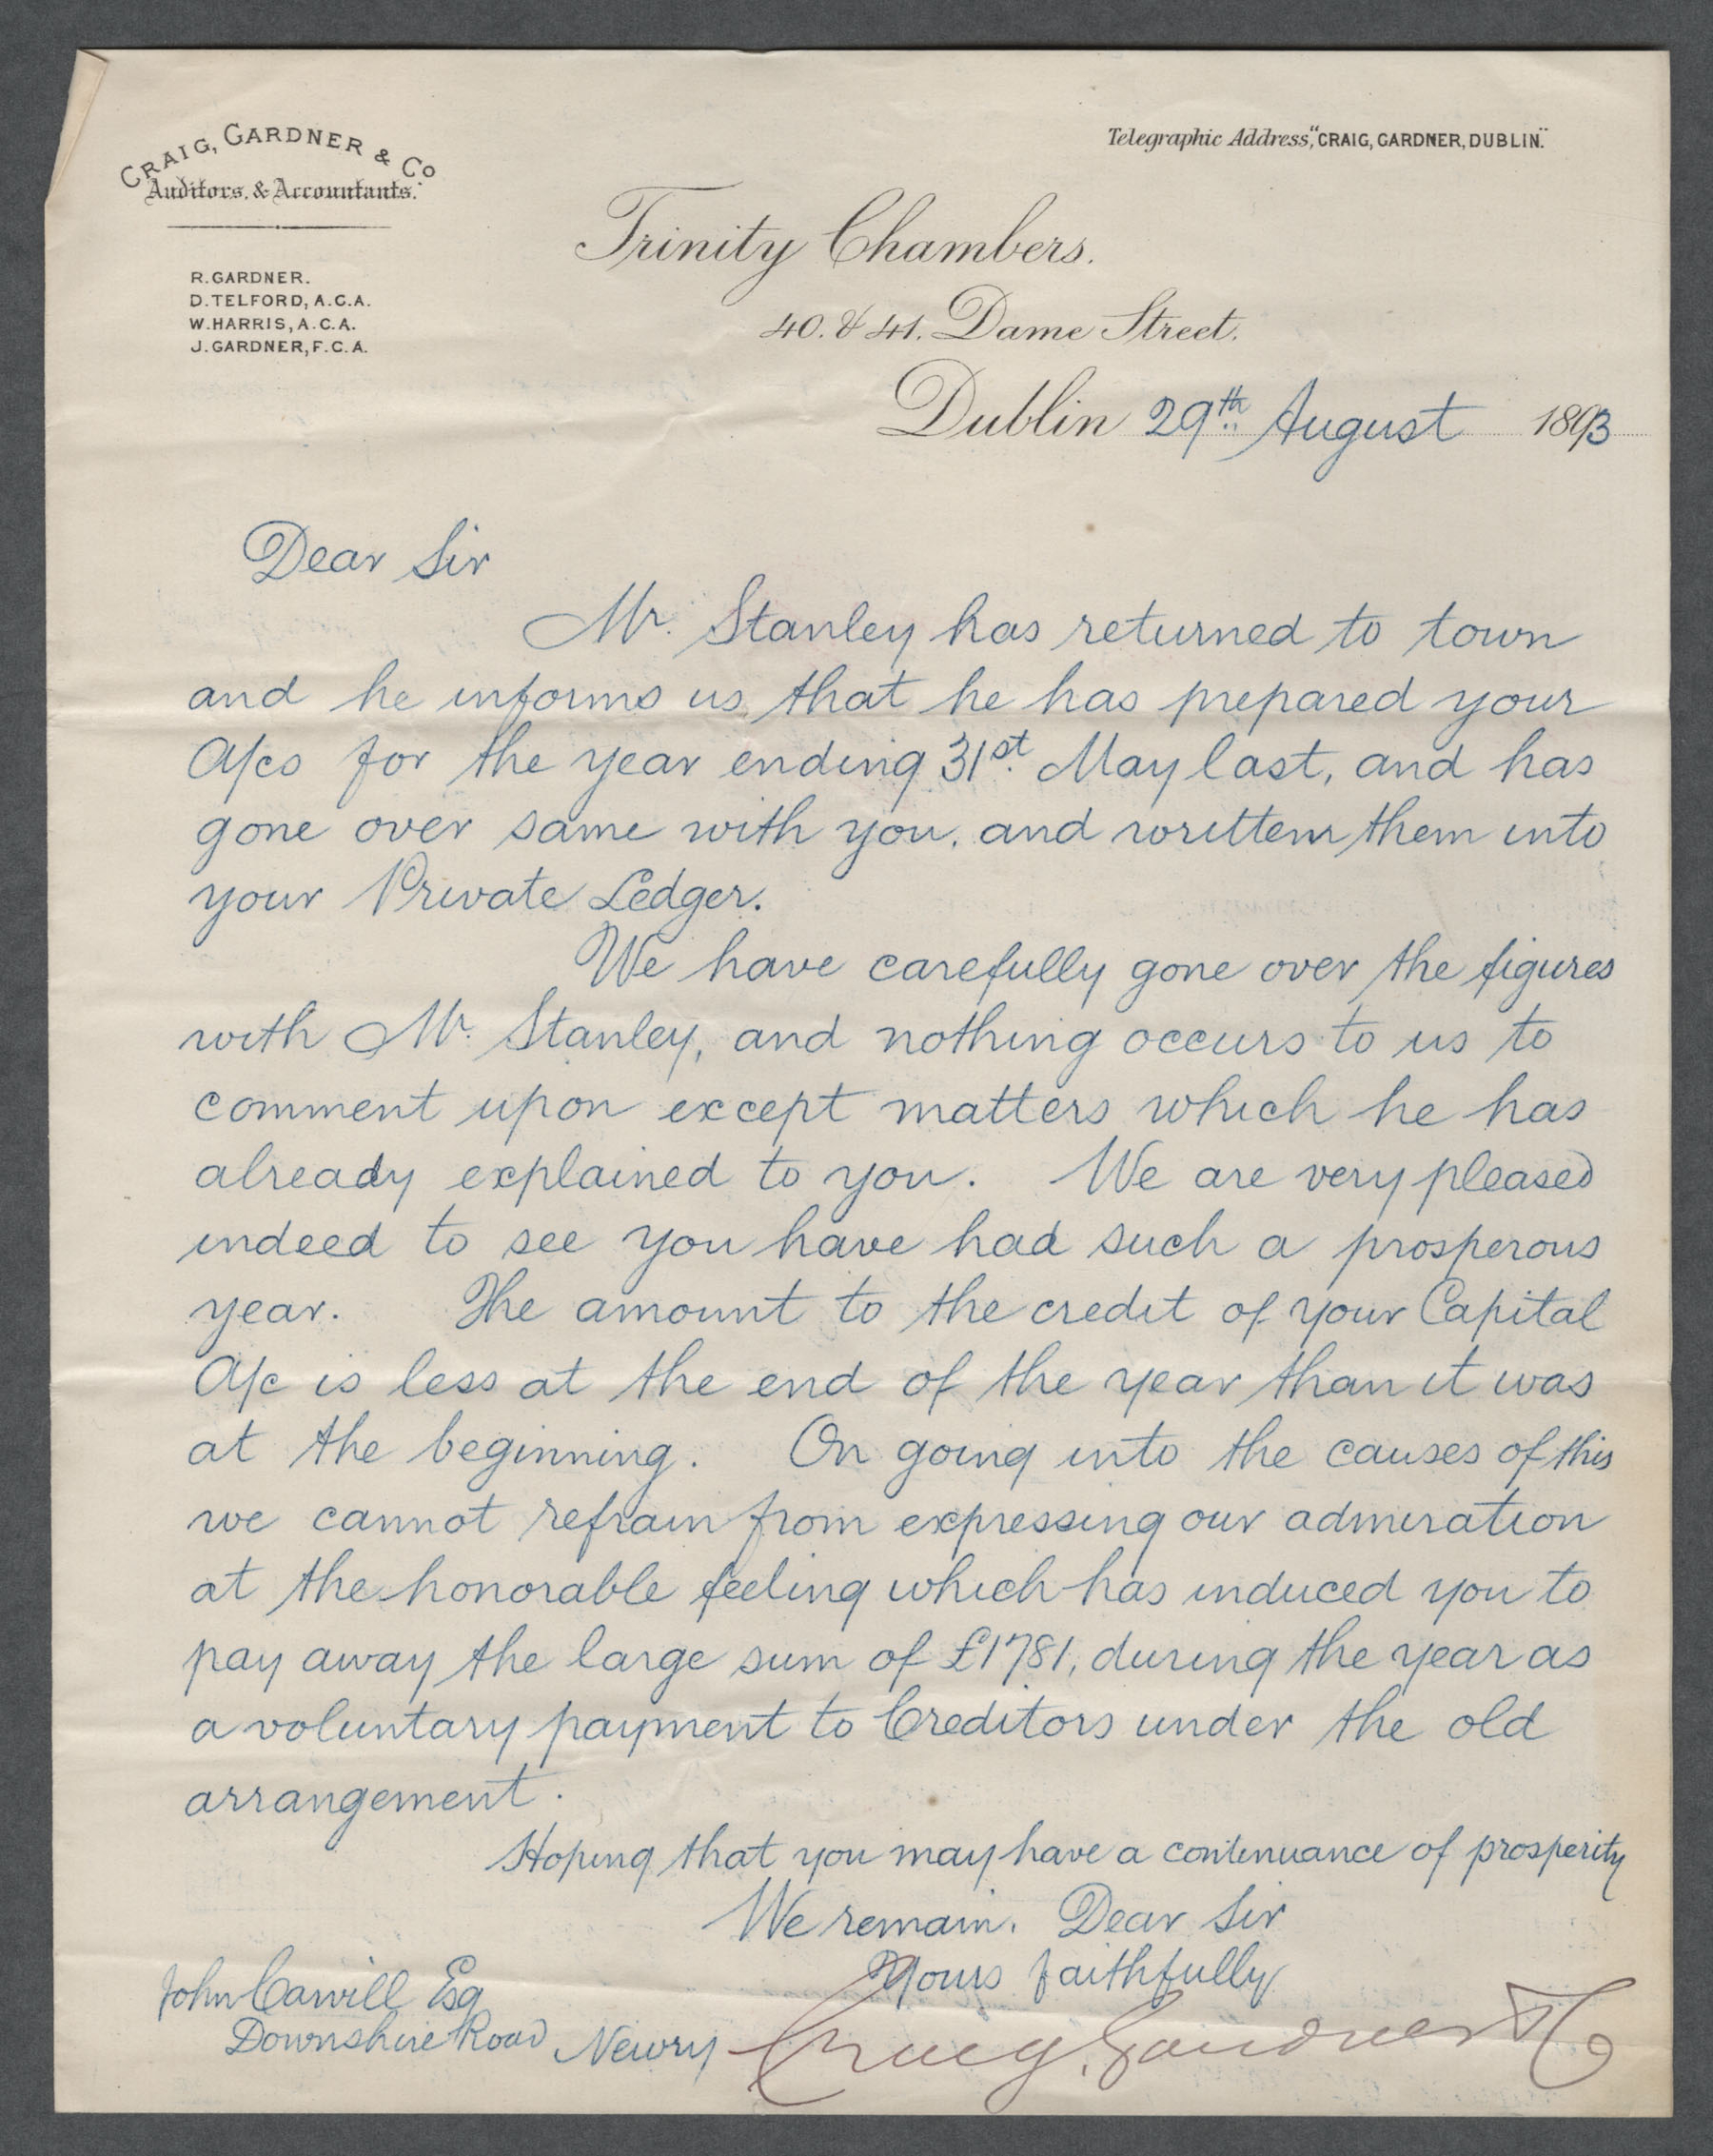 CRAIG, GARDNER & Co
Auditors, & Accountants.
R. GARDNER.
D. TELFORD, A.C.A.
W. HARRIS, A.C.A.
J. GARDNER, F.C.A.
Telegraphic Address, "CRAIG, GARDNER, DUBLIN."
Trinity Chambers.
40. & 41. Dame Street.
Dublin 29th August 1893
Dear Sir
Mr. Stanley has returned to town
and he informs us that he has prepared your
A/cs for the year ending 31st May last, and has
gone over same with you, and written them into
your Private Ledger.
We have carefully gone over the figures
with Mr. Stanley, and nothing occurs to us to
comment upon except matters which he has
already explained to you. We are very pleased
indeed to see you have had such a prosperous
year. The amount to the credit of your Capital
A/c is less at the end of the year than it was
at the beginning. On going into the causes of this
we cannot refrain from expressing our admiration
at the honorable feeling which has induced you to
pay away the large sum of £1781, during the year as
a voluntary payment to Creditors under the old
arrangement.
Hoping that you may have a continuance of prosperity
We remain. Dear Sir
Yours faithfully
Craig, Gardner & Co
John Carvill Esq
Downshire Road Newry